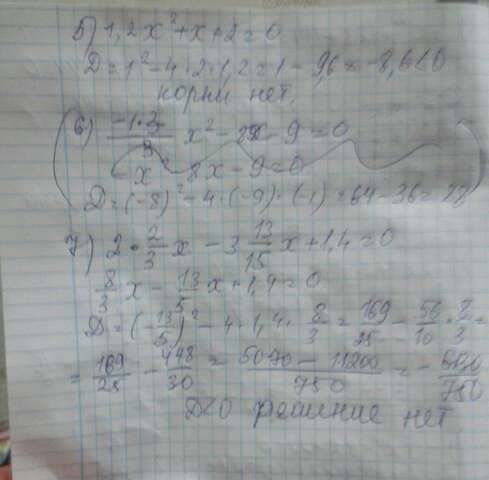 5) 1,2x²+x+2=0
D=1²-4·2·1,2=1-9,6=-8,6<0
корни нет.
6) x²-9=0
-x² 8x-9=0
D=(-8)²-4·(-9)·(-1)=64-36=28
7) 2·2/3x-3 13/15x+1,4=0
8/3x-13/5x+1,4=0
D=(-13/5)²-4·1,4·8/3=169/25-56/10·8/3=
=169/25-448/30=5070-11200/750=-/750
D<0 решение нет